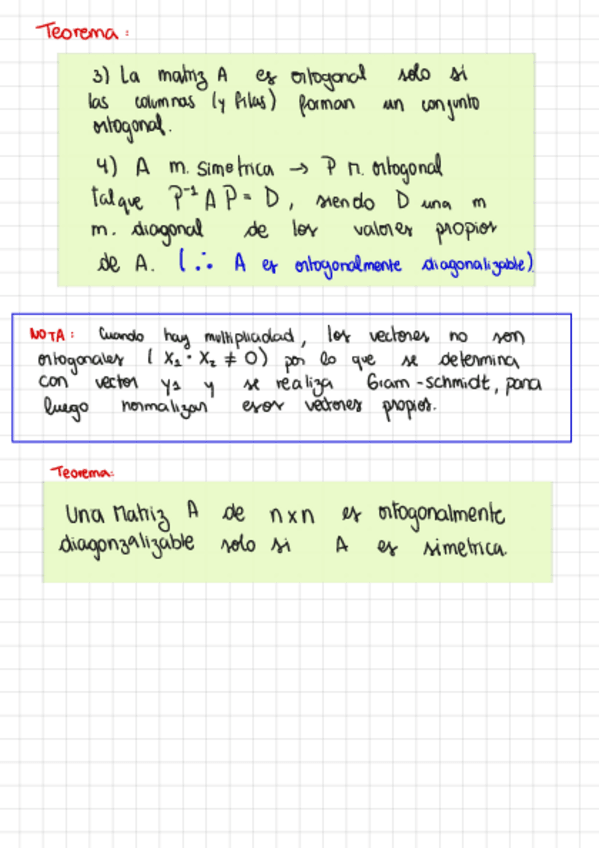 Teorema:
3) La matriz A es ortogonal solo si
las columnas (y filas) forman un conjunto
ortogonal.
4) A m. simetrica → P m. ortogonal
tal que P⁻¹ A P = D, siendo D una m
m. diagonal de los valores propios
de A. (∴ A es ortogonalmente diagonalizable)
NOTA: Cuando hay multiplicidad, los vectores no son
ortogonales (X₁ · X₂ ≠ 0) por lo que se determina
con vector y₂ y se realiza Gram-schmidt, para
luego normalizar esos vectores propios.
Teorema:
Una Matriz A de nxn es ortogonalmente
diagonzalizable solo si A es simetrica.